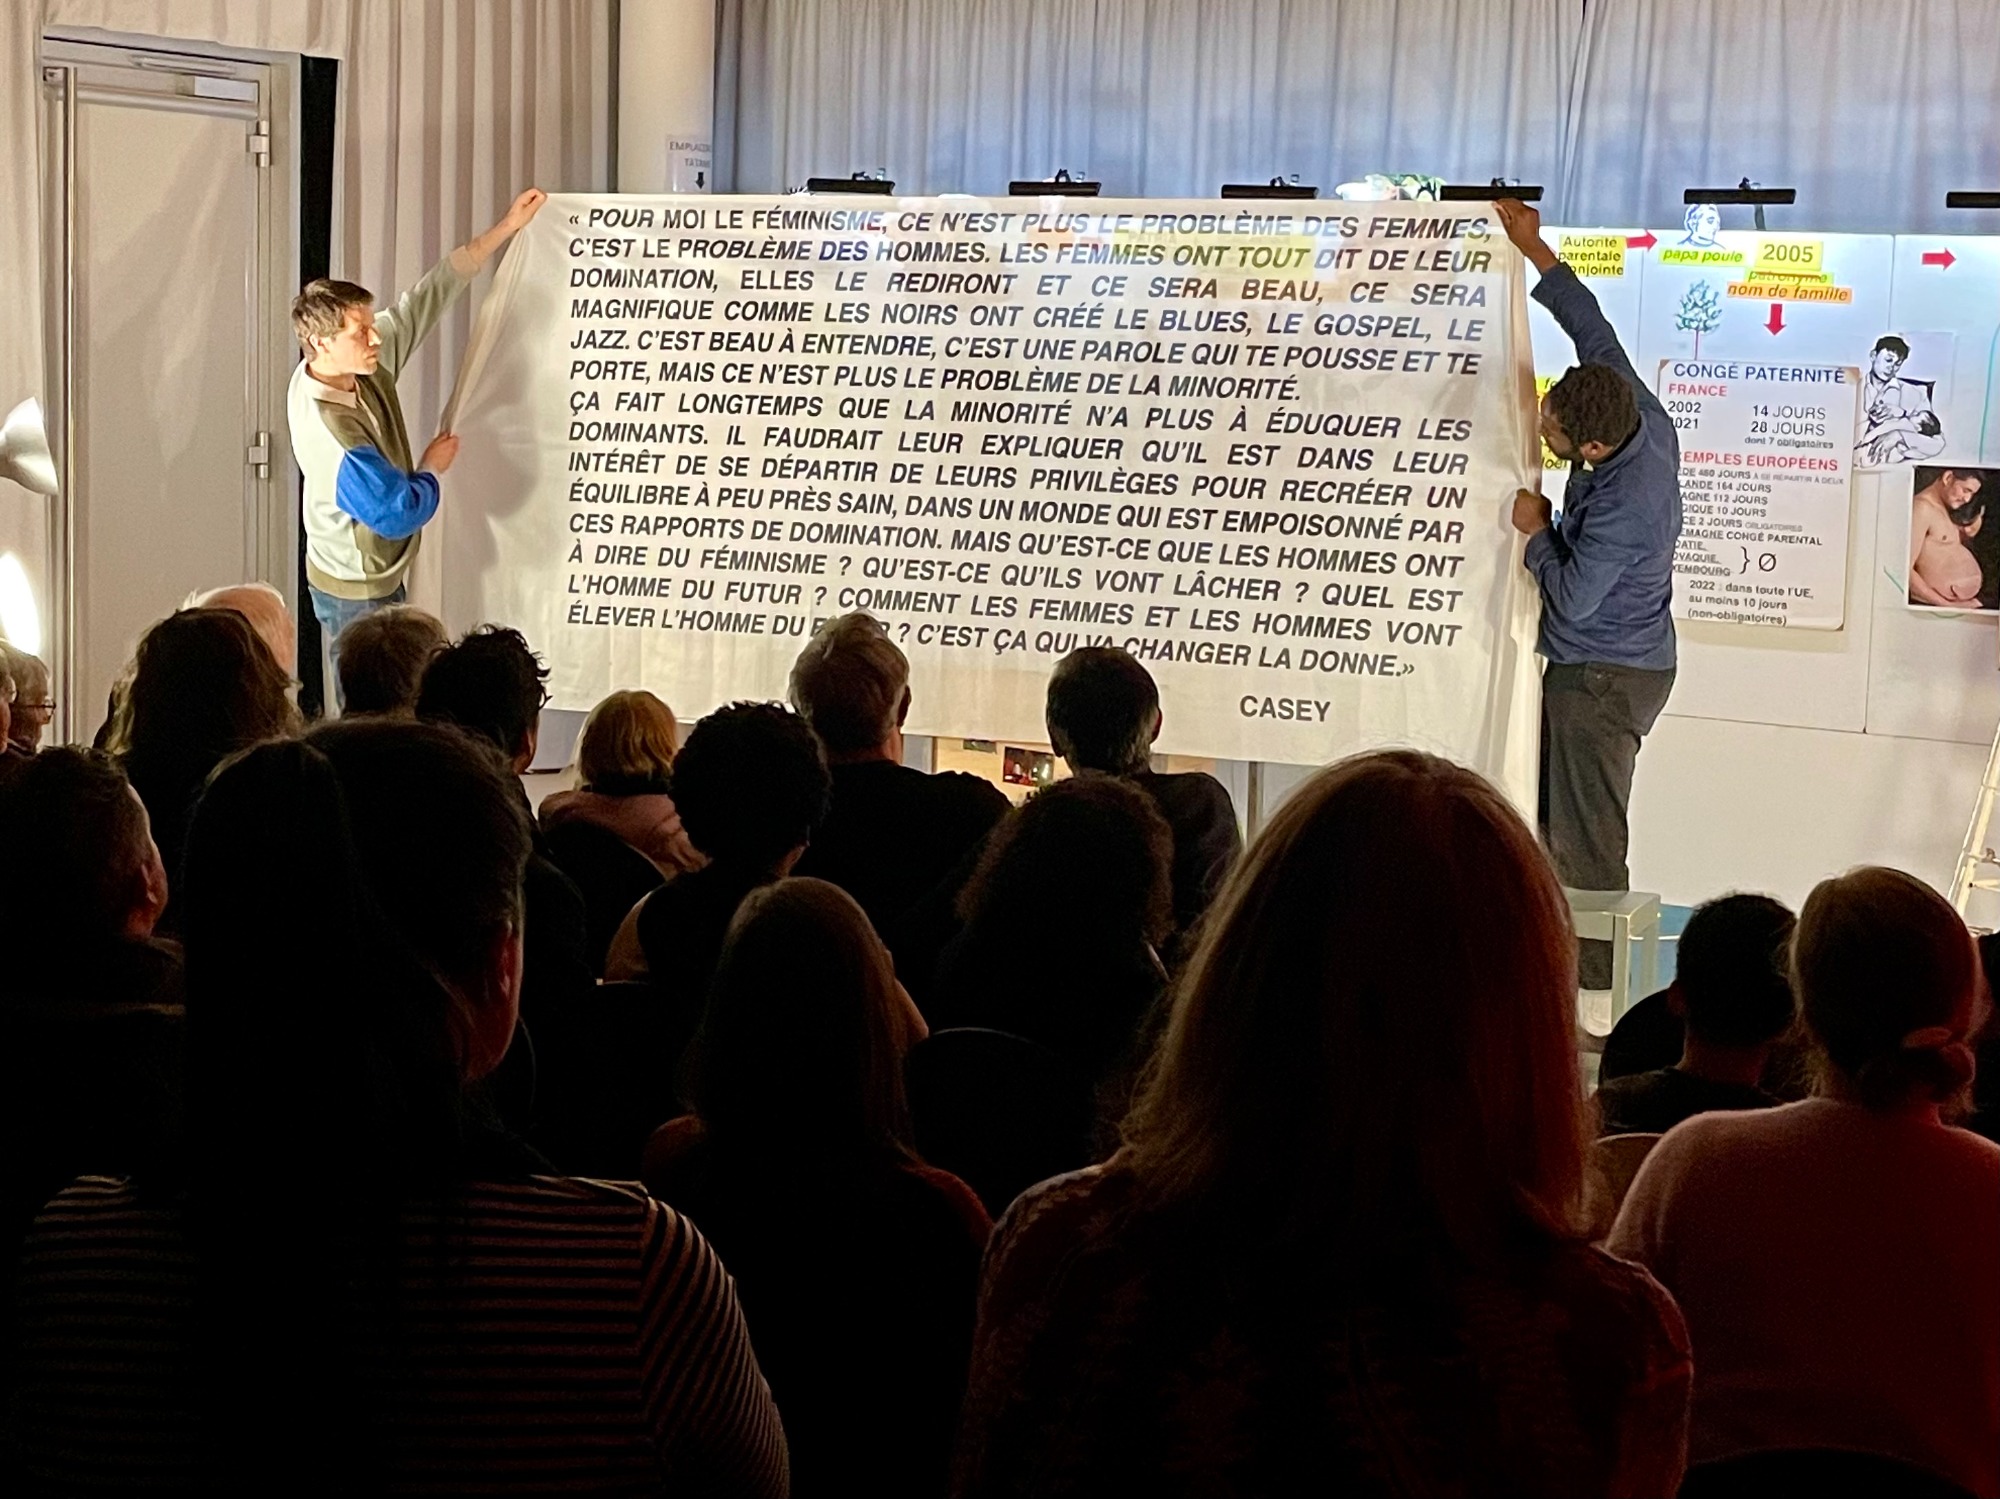 EMPLAC
« POUR MOI LE FÉMINISME, CE N'EST PLUS LE PROBLÈME DES FEMMES,
C'EST LE PROBLÈME DES HOMMES. LES FEMMES ONT TOUT DIT DE LEUR
DOMINATION, ELLES LE REDIRONT ET CE SERA BEAU, CE SERA
MAGNIFIQUE COMME LES NOIRS ONT CRÉÉ LE BLUES, LE GOSPEL, LE
JAZZ. C'EST BEAU À ENTENDRE, C'EST UNE PAROLE QUI TE POUSSE ET TE
PORTE, MAIS CE N'EST PLUS LE PROBLÈME DE LA MINORITÉ.
ÇA FAIT LONGTEMPS QUE LA MINORITÉ N'A PLUS À ÉDUQUER LES
DOMINANTS. IL FAUDRAIT LEUR EXPLIQUER QU'IL EST DANS LEUR
INTÉRÊT DE SE DÉPARTIR DE LEURS PRIVILÈGES POUR RECRÉER UN
ÉQUILIBRE À PEU PRÈS SAIN, DANS UN MONDE QUI EST EMPOISONNÉ PAR
CES RAPPORTS DE DOMINATION. MAIS QU'EST-CE QUE LES HOMMES ONT
À DIRE DU FÉMINISME ? QU'EST-CE QU'ILS VONT LÂCHER ? QUEL EST
L'HOMME DU FUTUR ? COMMENT LES FEMMES ET LES HOMMES VONT
ÉLEVER L'HOMME DU F R ? C'EST ÇA QUI VA CHANGER LA DONNE.»
CASEY
Autorité
parentale
onjointe
papa poule
2005
patronyme
nom de famille
CONGÉ PATERNITÉ
FRANCE
2002 14 JOURS
021 28 JOURS
dont 7 obligatoires
EMPLES EUROPÉENS
DE 480 JOURS À SE RÉPARTIR À DEUX
LANDE 164 JOURS
AGNE 112 JOURS
GIQUE 10 JOURS
CE 2 JOURS OBLIGATOIRES
EMAGNE CONGÉ PARENTAL
OATIE,
OVAQUIE, } Ø
XEMBOURG
2022 : dans toute l'UE,
au moins 10 jours
(non-obligatoires)